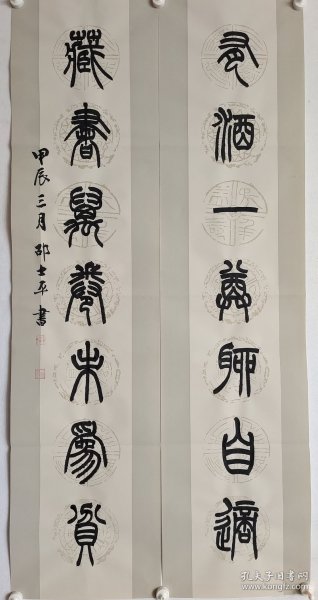 有酒一尊聊自適
藏書萬卷未為貧
甲辰三月邵士平書
孔夫子旧书网